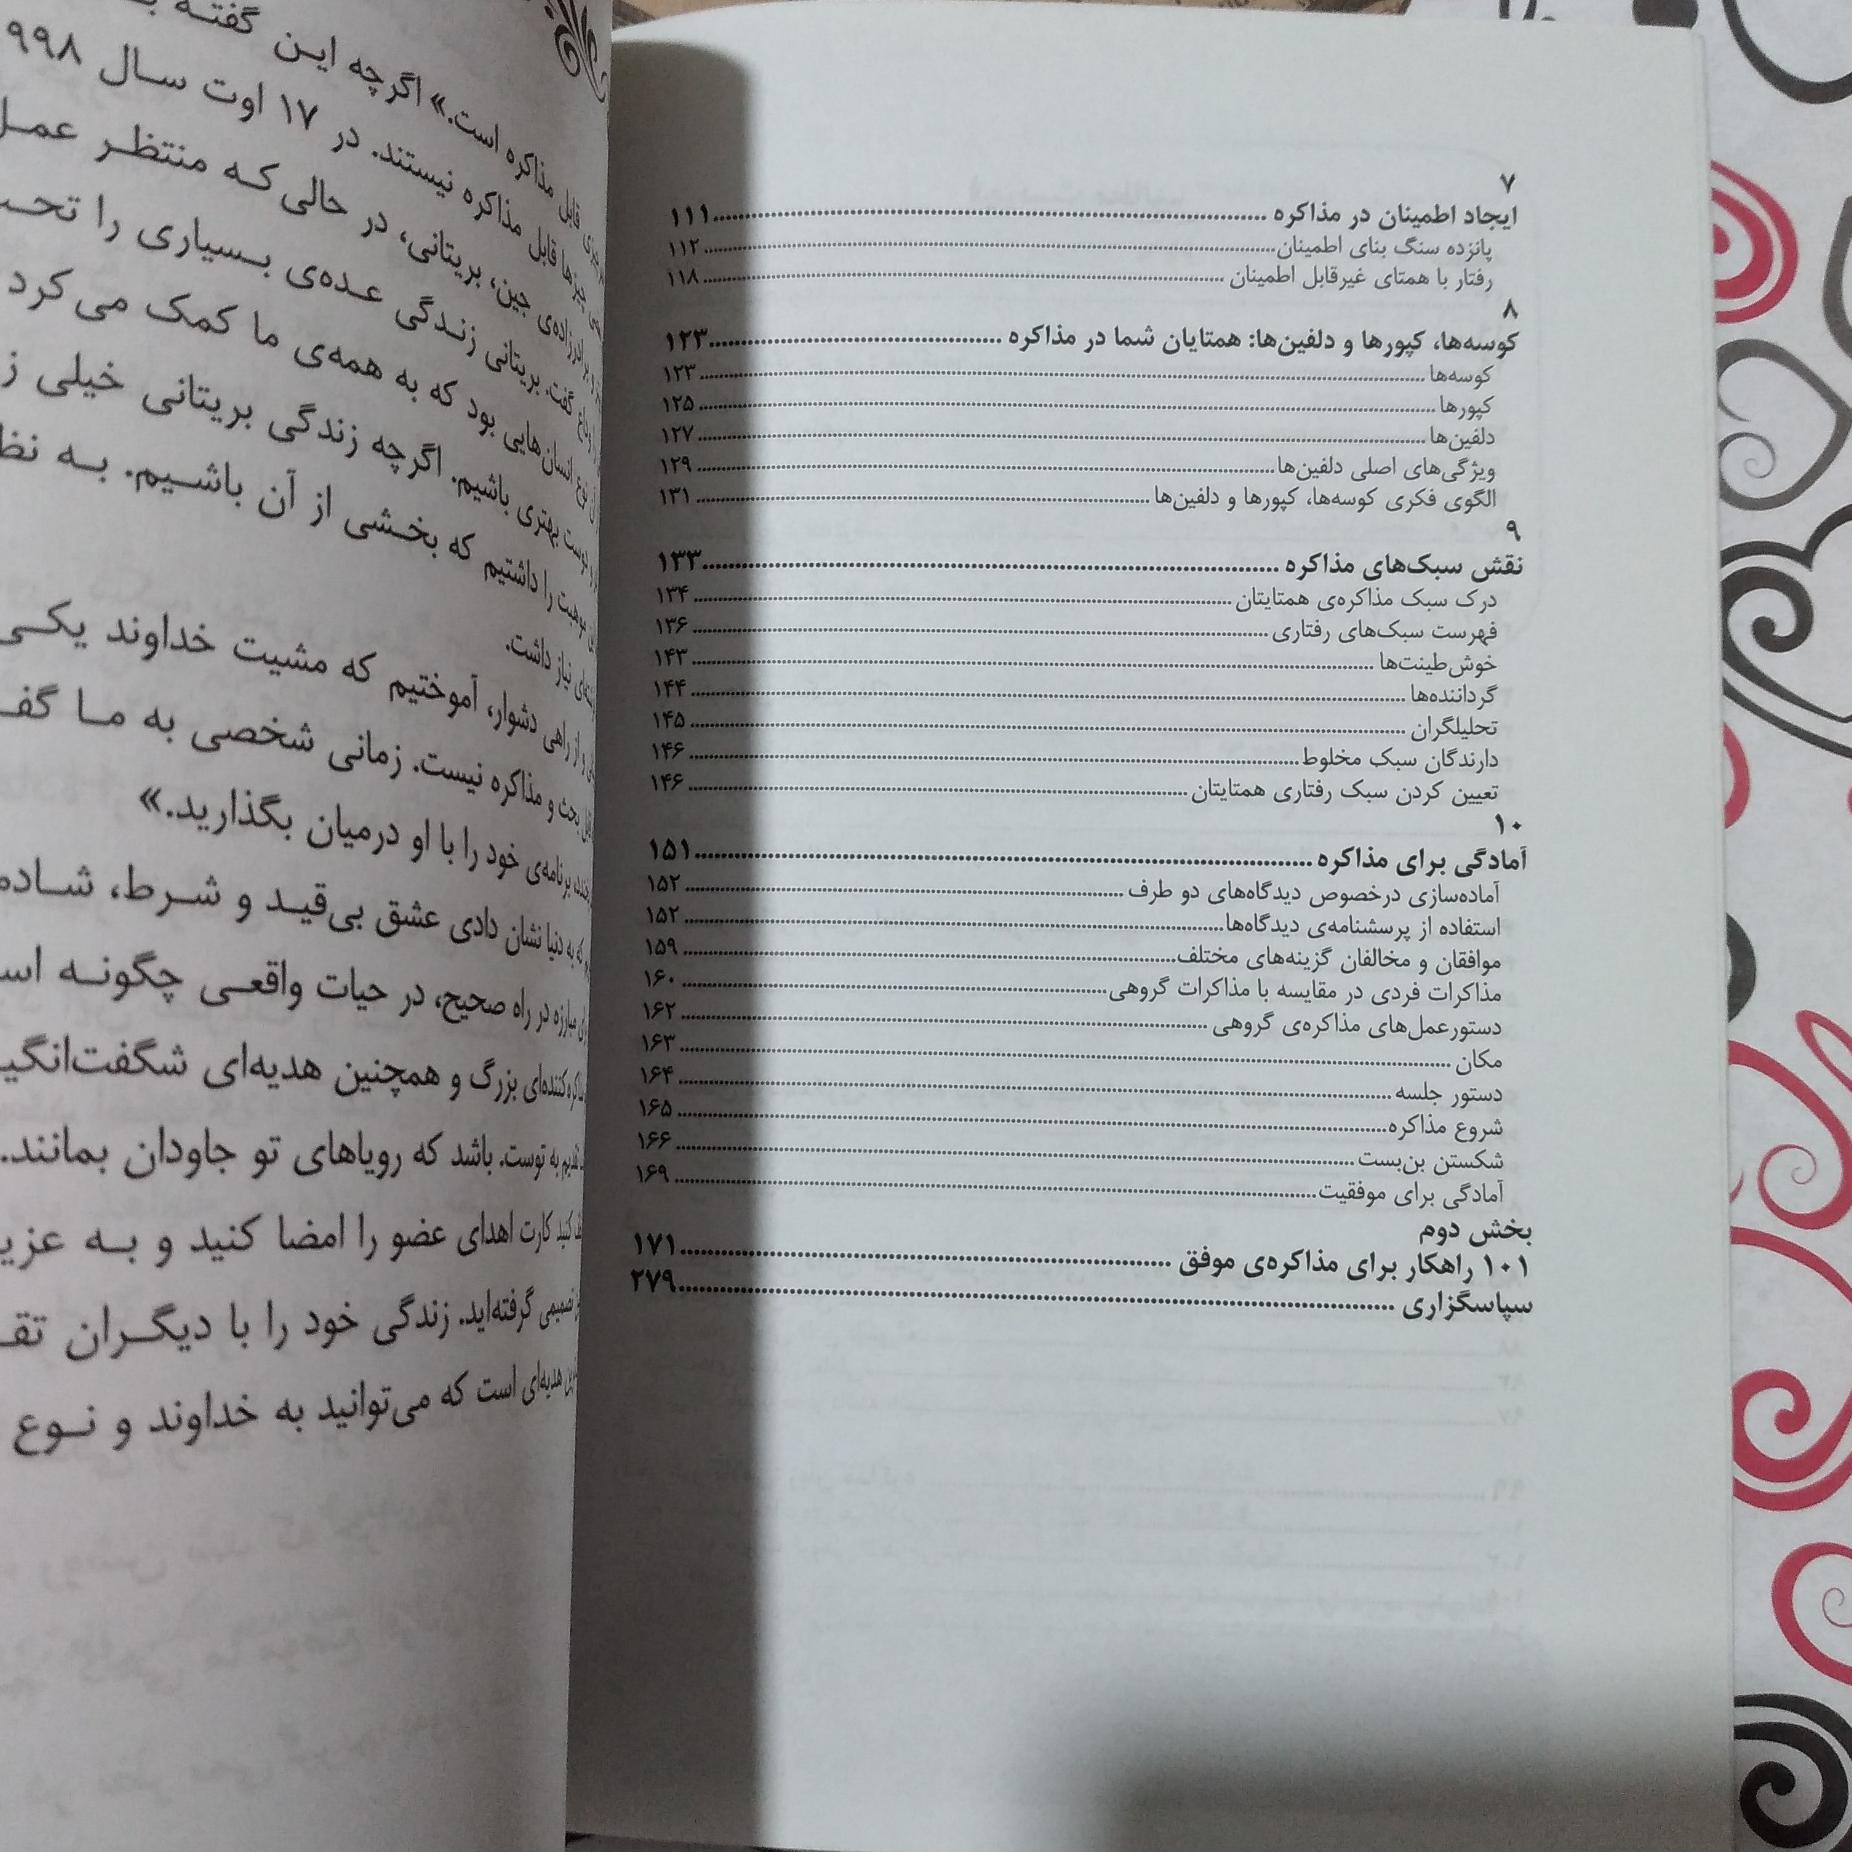 ۷
ایجاد اطمینان در مذاکره ........ ۱۱۱
پانزده سنگ بنای اطمینان ........ ۱۱۲
رفتار با همتای غیرقابل اطمینان ........ ۱۱۸
۸
کوسه‌ها، کپورها و دلفین‌ها: همتایان شما در مذاکره ........ ۱۲۳
کوسه‌ها ........ ۱۲۳
کپورها ........ ۱۲۵
دلفین‌ها ........ ۱۲۷
ویژگی‌های اصلی دلفین‌ها ........ ۱۲۹
الگوی فکری کوسه‌ها، کپورها و دلفین‌ها ........ ۱۳۱
۹
نقش سبک‌های مذاکره ........ ۱۳۳
درک سبک مذاکره‌ی همتایتان ........ ۱۳۴
فهرست سبک‌های رفتاری ........ ۱۳۶
خوش‌طینت‌ها ........ ۱۴۳
گرداننده‌ها ........ ۱۴۴
تحلیلگران ........ ۱۴۵
دارندگان سبک مخلوط ........ ۱۴۶
تعیین کردن سبک رفتاری همتایتان ........ ۱۴۶
۱۰
آمادگی برای مذاکره ........ ۱۵۱
آماده‌سازی درخصوص دیدگاه‌های دو طرف ........ ۱۵۲
استفاده از پرسشنامه‌ی دیدگاه‌ها ........ ۱۵۲
موافقان و مخالفان گزینه‌های مختلف ........ ۱۵۹
مذاکرات فردی در مقایسه با مذاکرات گروهی ........ ۱۶۰
دستورعمل‌های مذاکره‌ی گروهی ........ ۱۶۲
مکان ........ ۱۶۳
دستور جلسه ........ ۱۶۴
شروع مذاکره ........ ۱۶۵
شکستن بن‌بست ........ ۱۶۶
آمادگی برای موفقیت ........ ۱۶۹
بخش دوم
۱۰۱ راهکار برای مذاکره‌ی موفق ........ ۱۷۱
سپاسگزاری ........ ۲۷۹
قابل مذاکره است.» اگرچه این گفته
چیزها قابل مذاکره نیستند. در ۱۷ اوت سال ۹۹۸
برادرزاده‌ی جین، بریتانی، در حالی که منتظر عمل
گفت. بریتانی زندگی عده‌ی بسیاری را
نوع انسان‌هایی بود که به همه‌ی ما کمک می‌کرد
دوست بهتری باشیم. اگرچه زندگی بریتانی خیلی
موهبت را داشتیم که بخشی از آن باشیم. به
نیاز داشت.
و از راهی دشوار، آموختیم که مشیت خداوند یکی
قابل بحث و مذاکره نیست. زمانی شخصی به ما
برنامه‌ی خود را با او درمیان بگذارید.»
که به دنیا نشان دادی عشق بی‌قید و شرط،
مبارزه در راه صحیح، در حیات واقعی چگونه
بزرگ و همچنین هدیه‌ای
تقدیم به توست. باشد که رویاهای تو جاودان بمانند.
کنید کارت اهدای عضو را امضا کنید و به
تصمیمی گرفته‌اید. زندگی خود را با دیگران
هدیه‌ای است که می‌توانید به خداوند و نوع